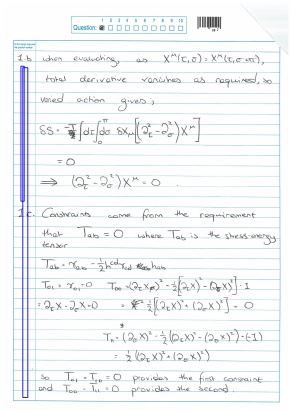 1 2 3 4 5 6 7 8 9 10
Question:
1.b when evaluating, as X^μ(τ,σ) = X^μ(τ,σ+π),
total derivative vanishes as required, so
varied action gives;
δS = -T ∫dτ∫₀^π dσ δX_μ[(∂_τ² - ∂_σ²) X^μ]
= 0
⟹ (∂_τ² - ∂_σ²) X^μ = 0.
1.c. Constraints come from the requirement
that T_ab = 0 where T_ab is the stress-energy
tensor
T_ab = γ_ab - ½ h^cd γ_cd h_ab
T_01 = γ_01 = 0 T_00 = (∂_τ X)² - ½[(∂_τ X)² - (∂_σ X)²] · 1
= ∂_τ X · ∂_σ X = 0 = ½[(∂_τ X)² + (∂_σ X)²] = 0
T_11 = (∂_σ X)² - ½[(∂_τ X)² - (∂_σ X)²] · (-1)
= ½((∂_τ X)² + (∂_σ X)²)
so T_01 = T_10 = 0 provides the first constraint
and T_00 = T_11 = 0 provides the second.